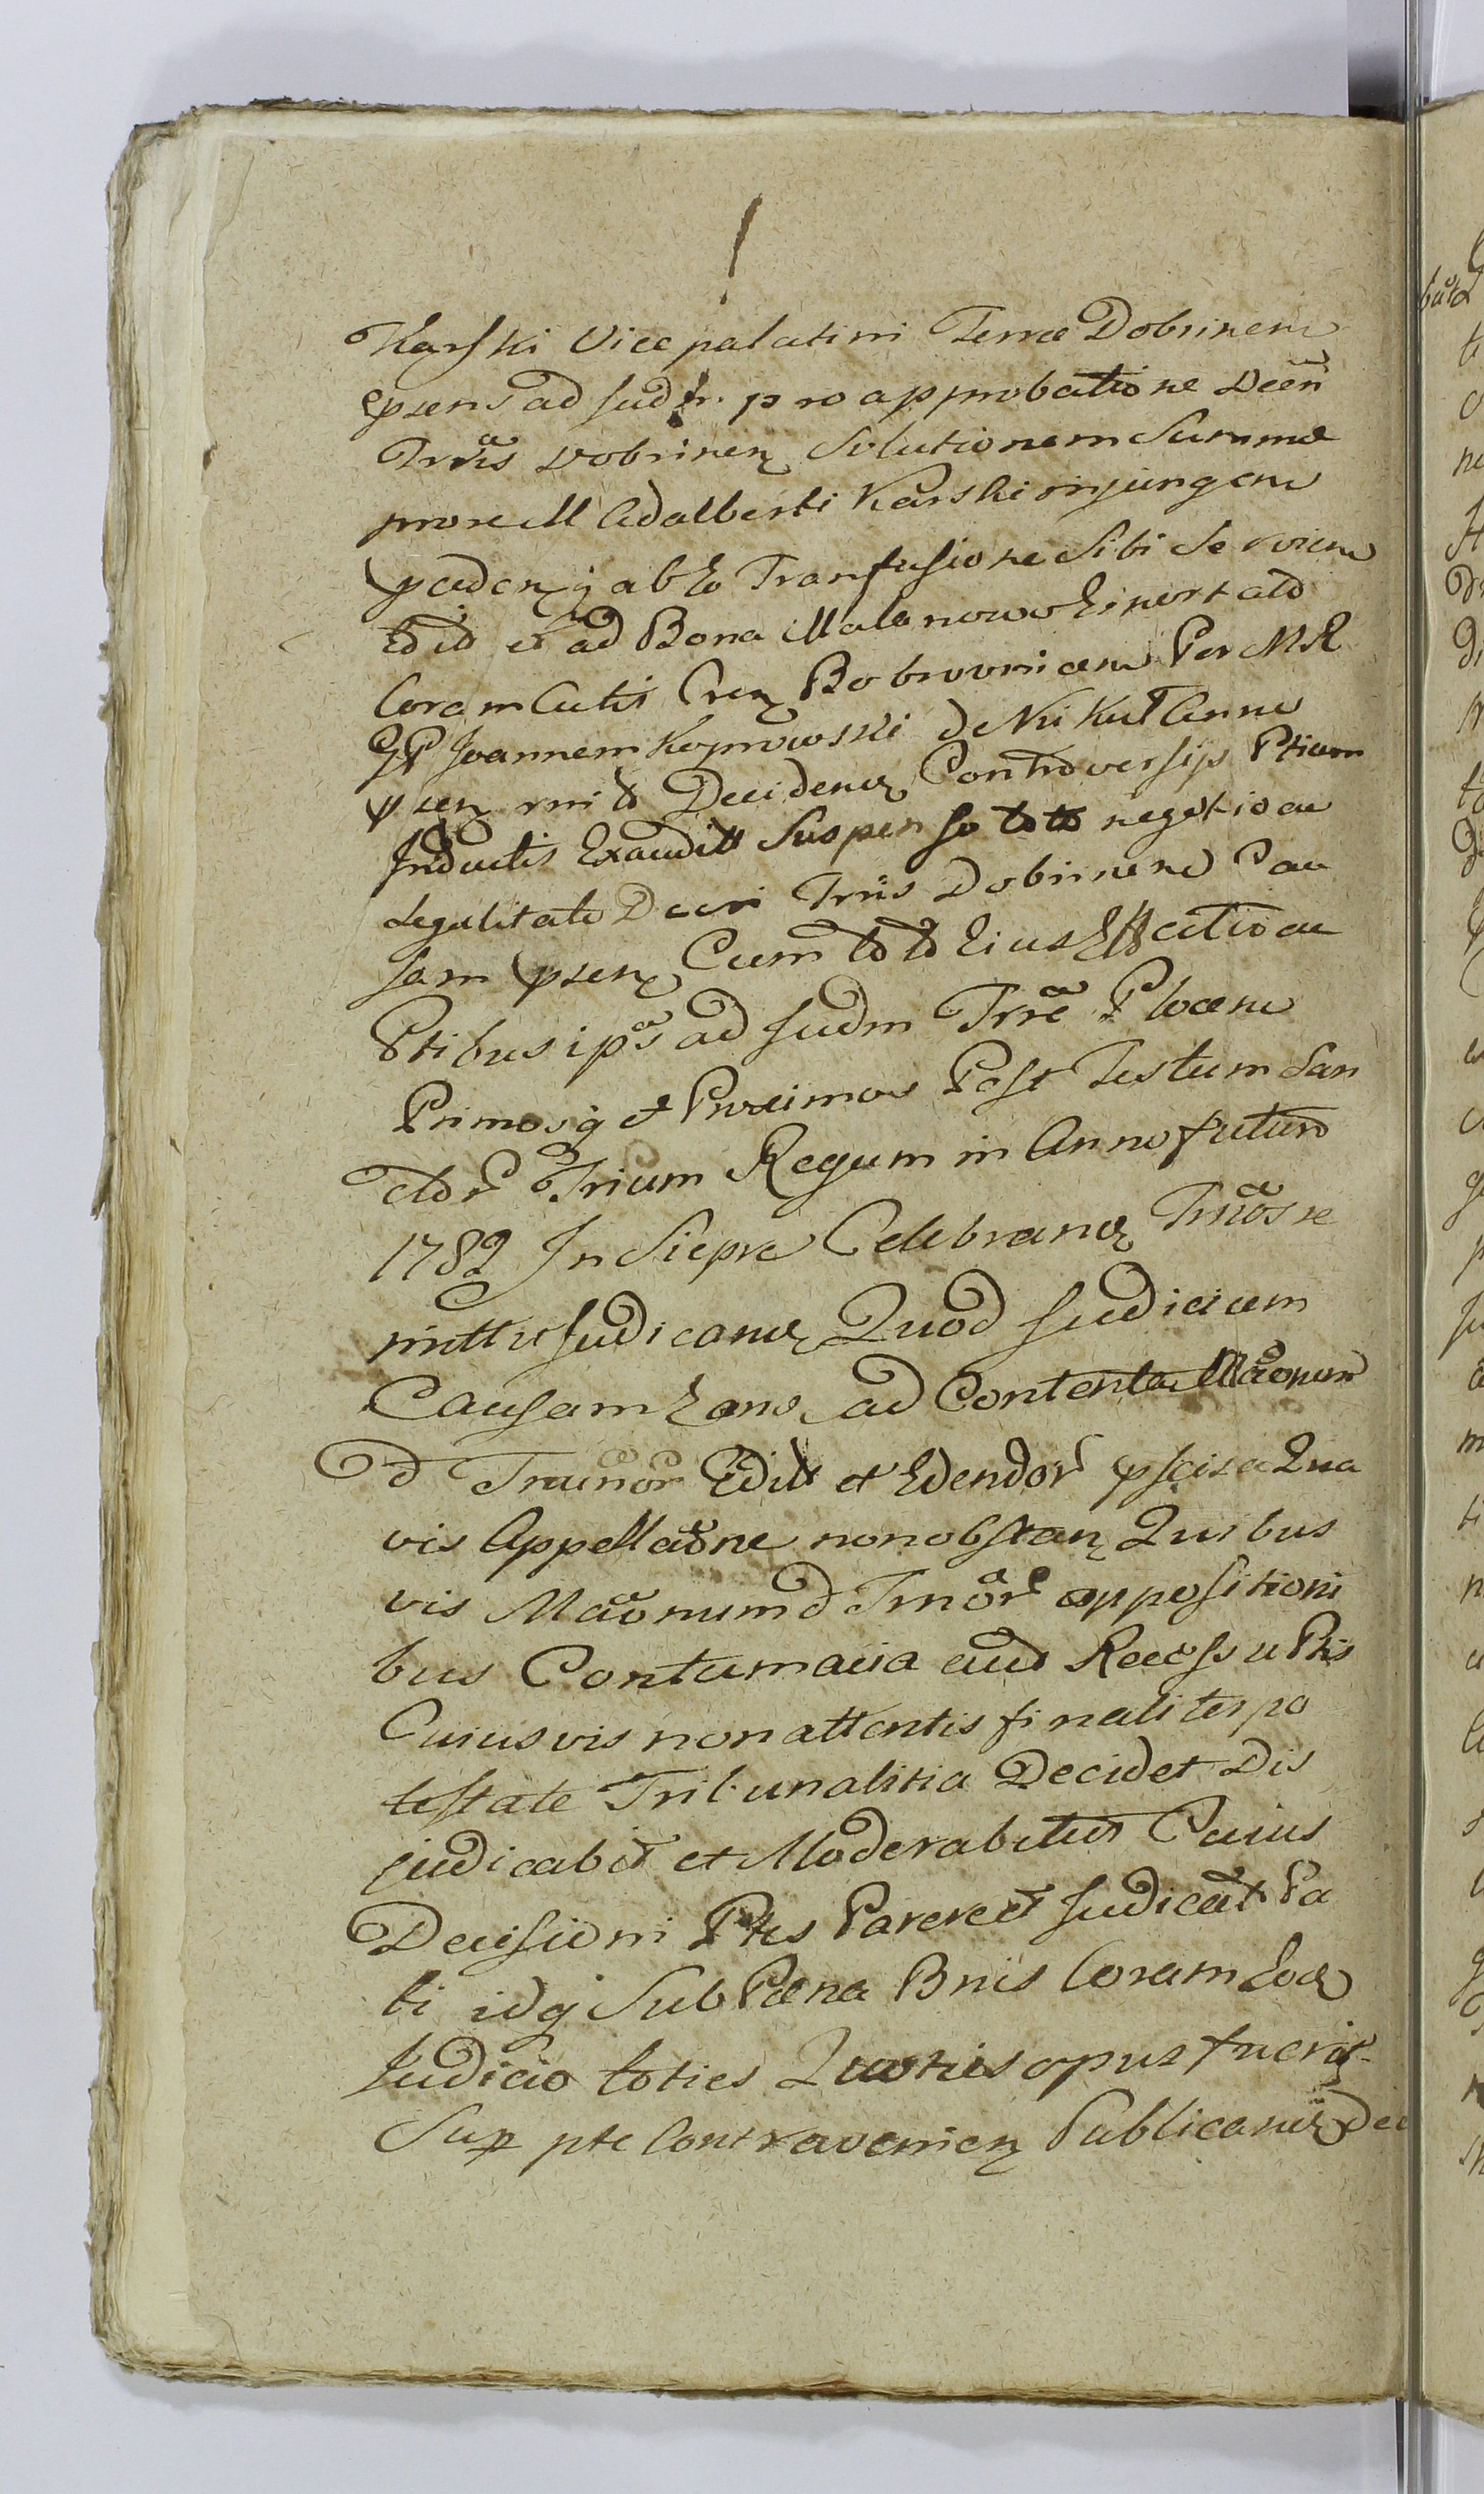 Karski Vice palatini Terrae Dobrinen
psens ad Judm pro approbatione Deen
Trris Dobrinen Solutionem Summae
prore M Adalberti Karski injungen
pceden q ab Eo Transfusione Sibi Servien
Edit et ad Bona Malanowo Einort ald
Coram Actis Cren Bobrovnicen Per MR
GP Joannem Koprowski de Nri Kut Anno
psen rni d Deciden Controversiis Ptium
Inductis Exauditt Suspenso toto negotio ac
Legalitate Decri Trris Dobrinen Cau
sam psen Cum toto Eius Effectio ac
Ptibus ipis ad Judm Trre Plocen
Primos q et Proximos Post Festum San
ctor Trium Regum in Anno futuro
1782 In Sierpc Celebran Trnos re
mittit Judican Quod Judicium
Causam hanc ad Contenta Maonum
d Trminor Edit et Edendor pscisa Qua
vis Appellaone non obstan Quibus
vis Maonum d Trnor oppositioni
bus Contumacia aut Recessu Ptis
Cuiusvis non attentis finaliter po
testate Tribunalitia Decidet Dis
judicabit et Moderabitur Cuius
Decisioni Ptes Parere et Judicat Pa
ti idq Sub Paena Bnis Coram Eod
Judicio toties Quoties opus fuerit
Sup pte Contravenien Publican Dec